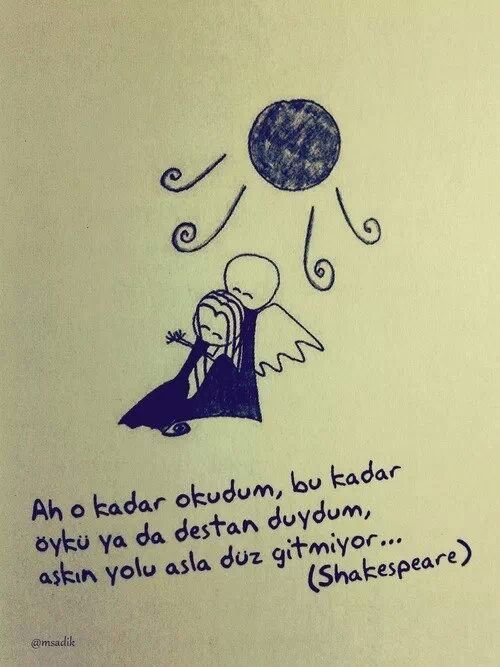 Ah o kadar okudum, bu kadar
öykü ya da destan duydum,
aşkın yolu asla düz gitmiyor...
(Shakespeare)
@msadik